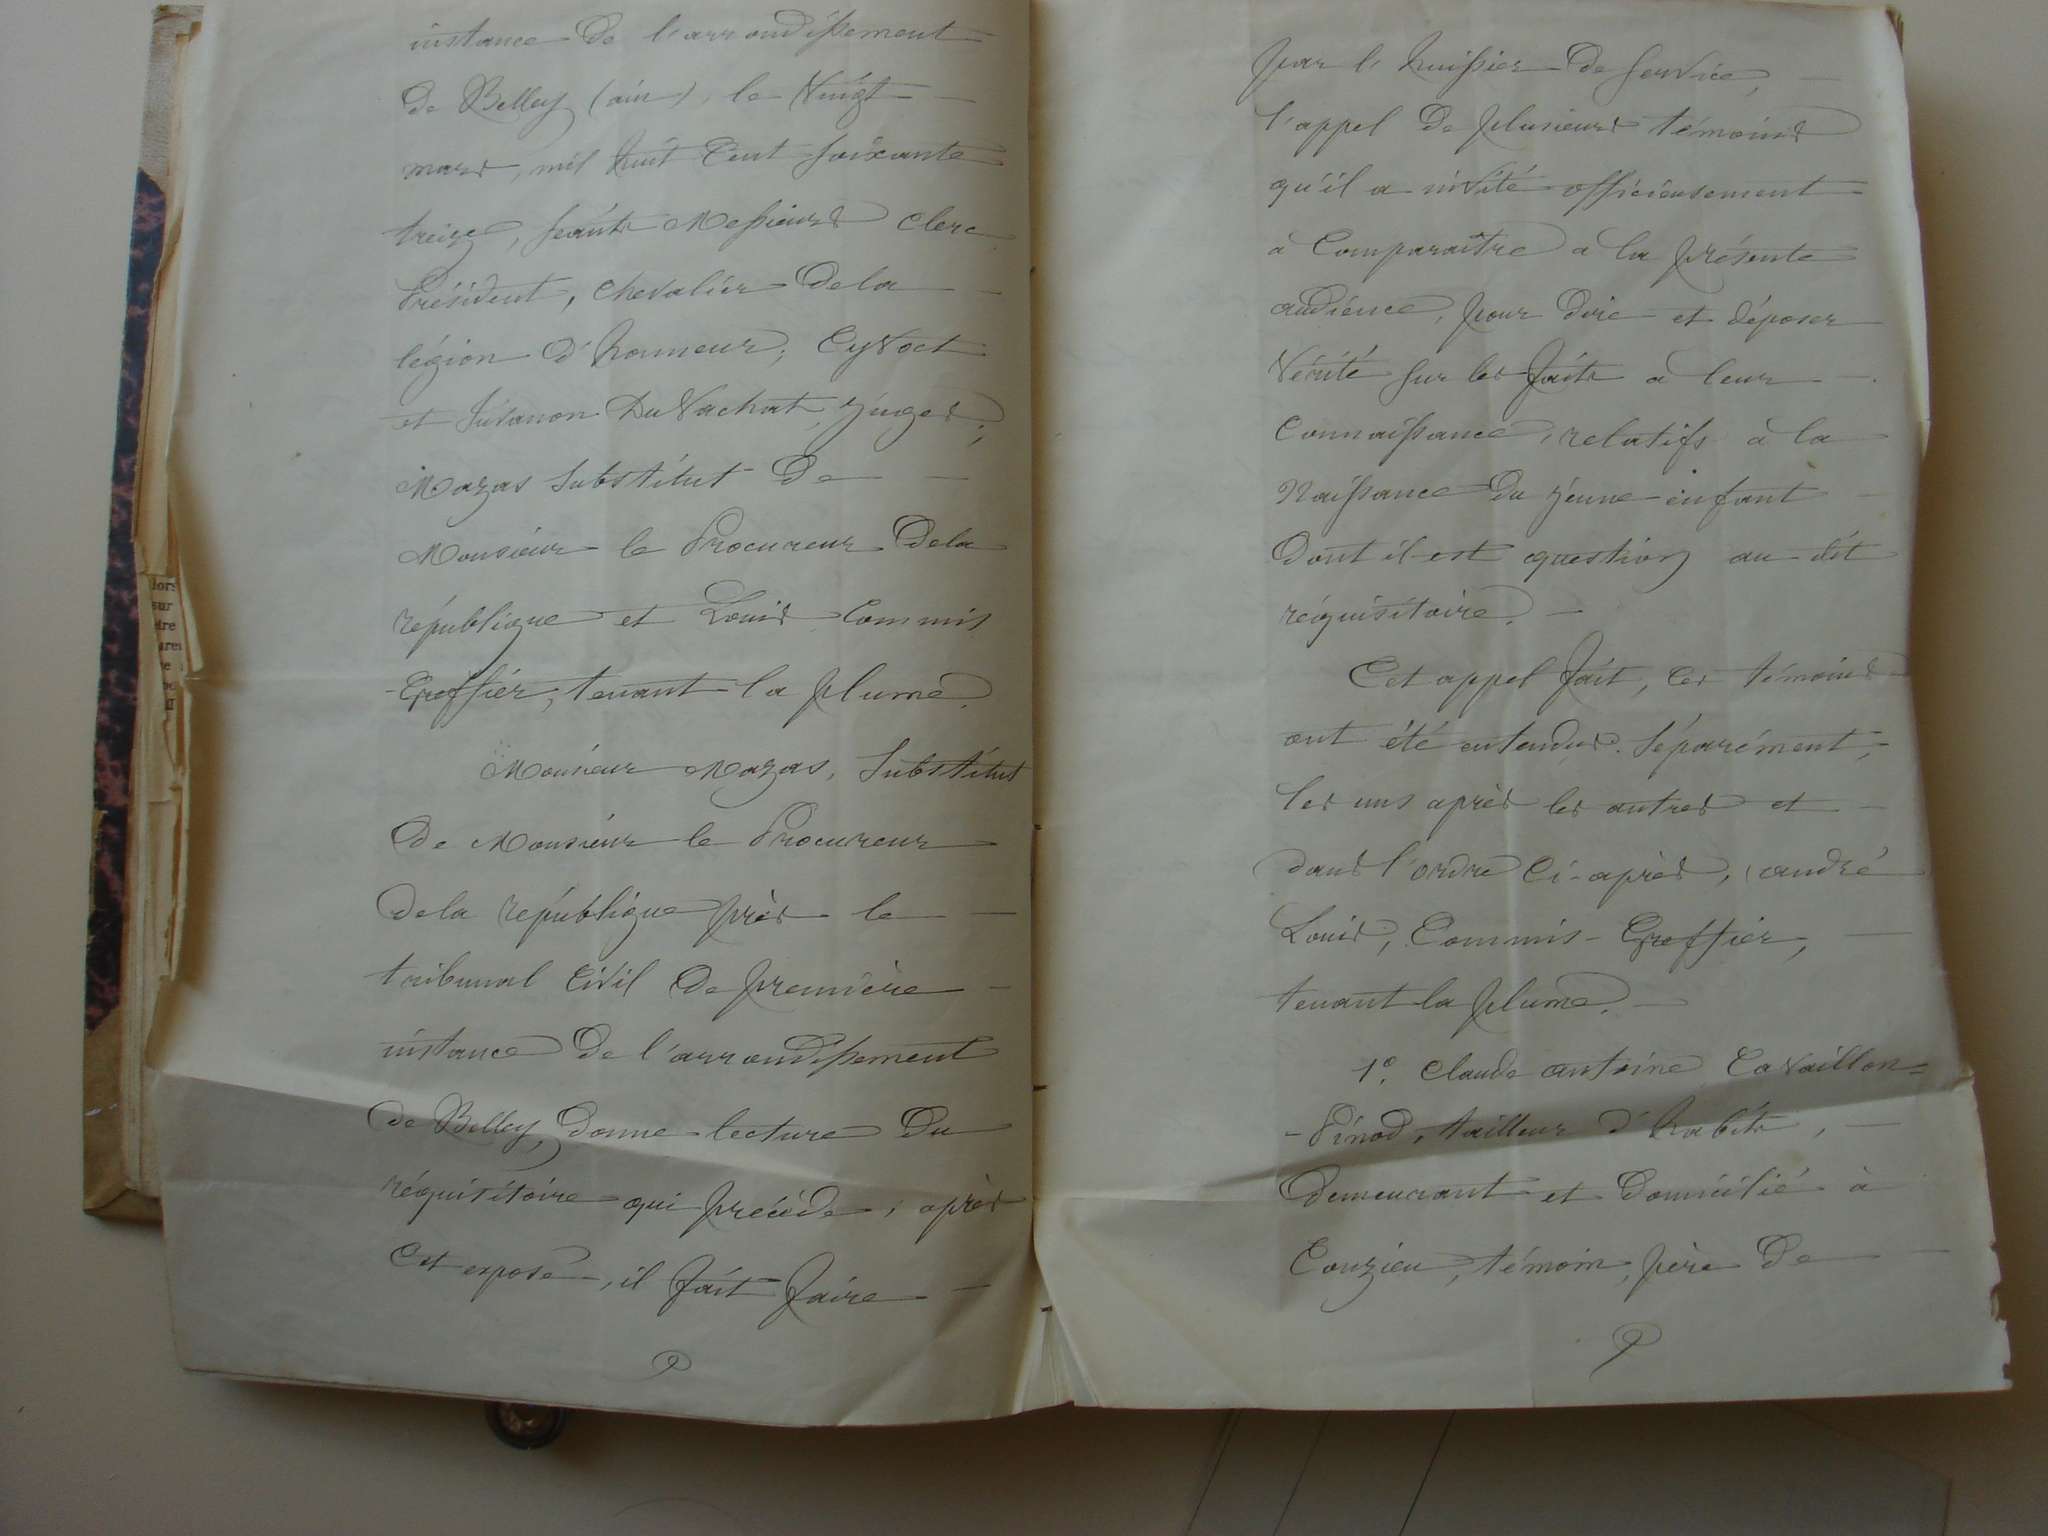 instance de l'arrondissement
de Belley (ain), le Vingt
mars, mil huit Cent soixante
treize, séants Messieurs Clerc
Président, chevalier de la
légion d'honneur, Cyvoct
et Sulanon Du Vachat, juges,
Mazas Substitut de
Monsieur le Procureur de la
république et Louis Commis
Greffier, tenant la plume.
Monsieur Mazas, Substitut
de Monsieur le Procureur
de la république près le
tribunal Civil de première
instance de l'arrondissement
de Belley, donne lecture du
réquisitoire qui précède, après
Cet exposé, il fait faire
par l'huissier de service,
l'appel de plusieurs témoins
qu'il a invité officieusement
à Comparaître a la présente
audience, pour dire et déposer
Vérité sur les faits a leur
Connaissance, relatifs à la
Naissance du jeune enfant
dont il est question au dit
réquisitoire.
Cet appel fait, Ces témoins
ont été entendus séparément,
les uns après les autres et
dans l'ordre Ci-après, andré
Louis, Commis-Greffier,
tenant la plume.
1º. Claude antoine Cavaillon=
-Pinod, tailleur d'habits,
demeurant et domicilié à
Conzieu, témoin, père de
lors
sur